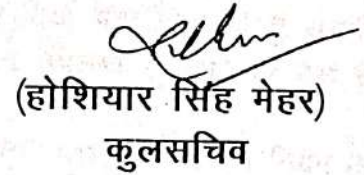 (होशियार सिंह मेहर)
कुलसचिव